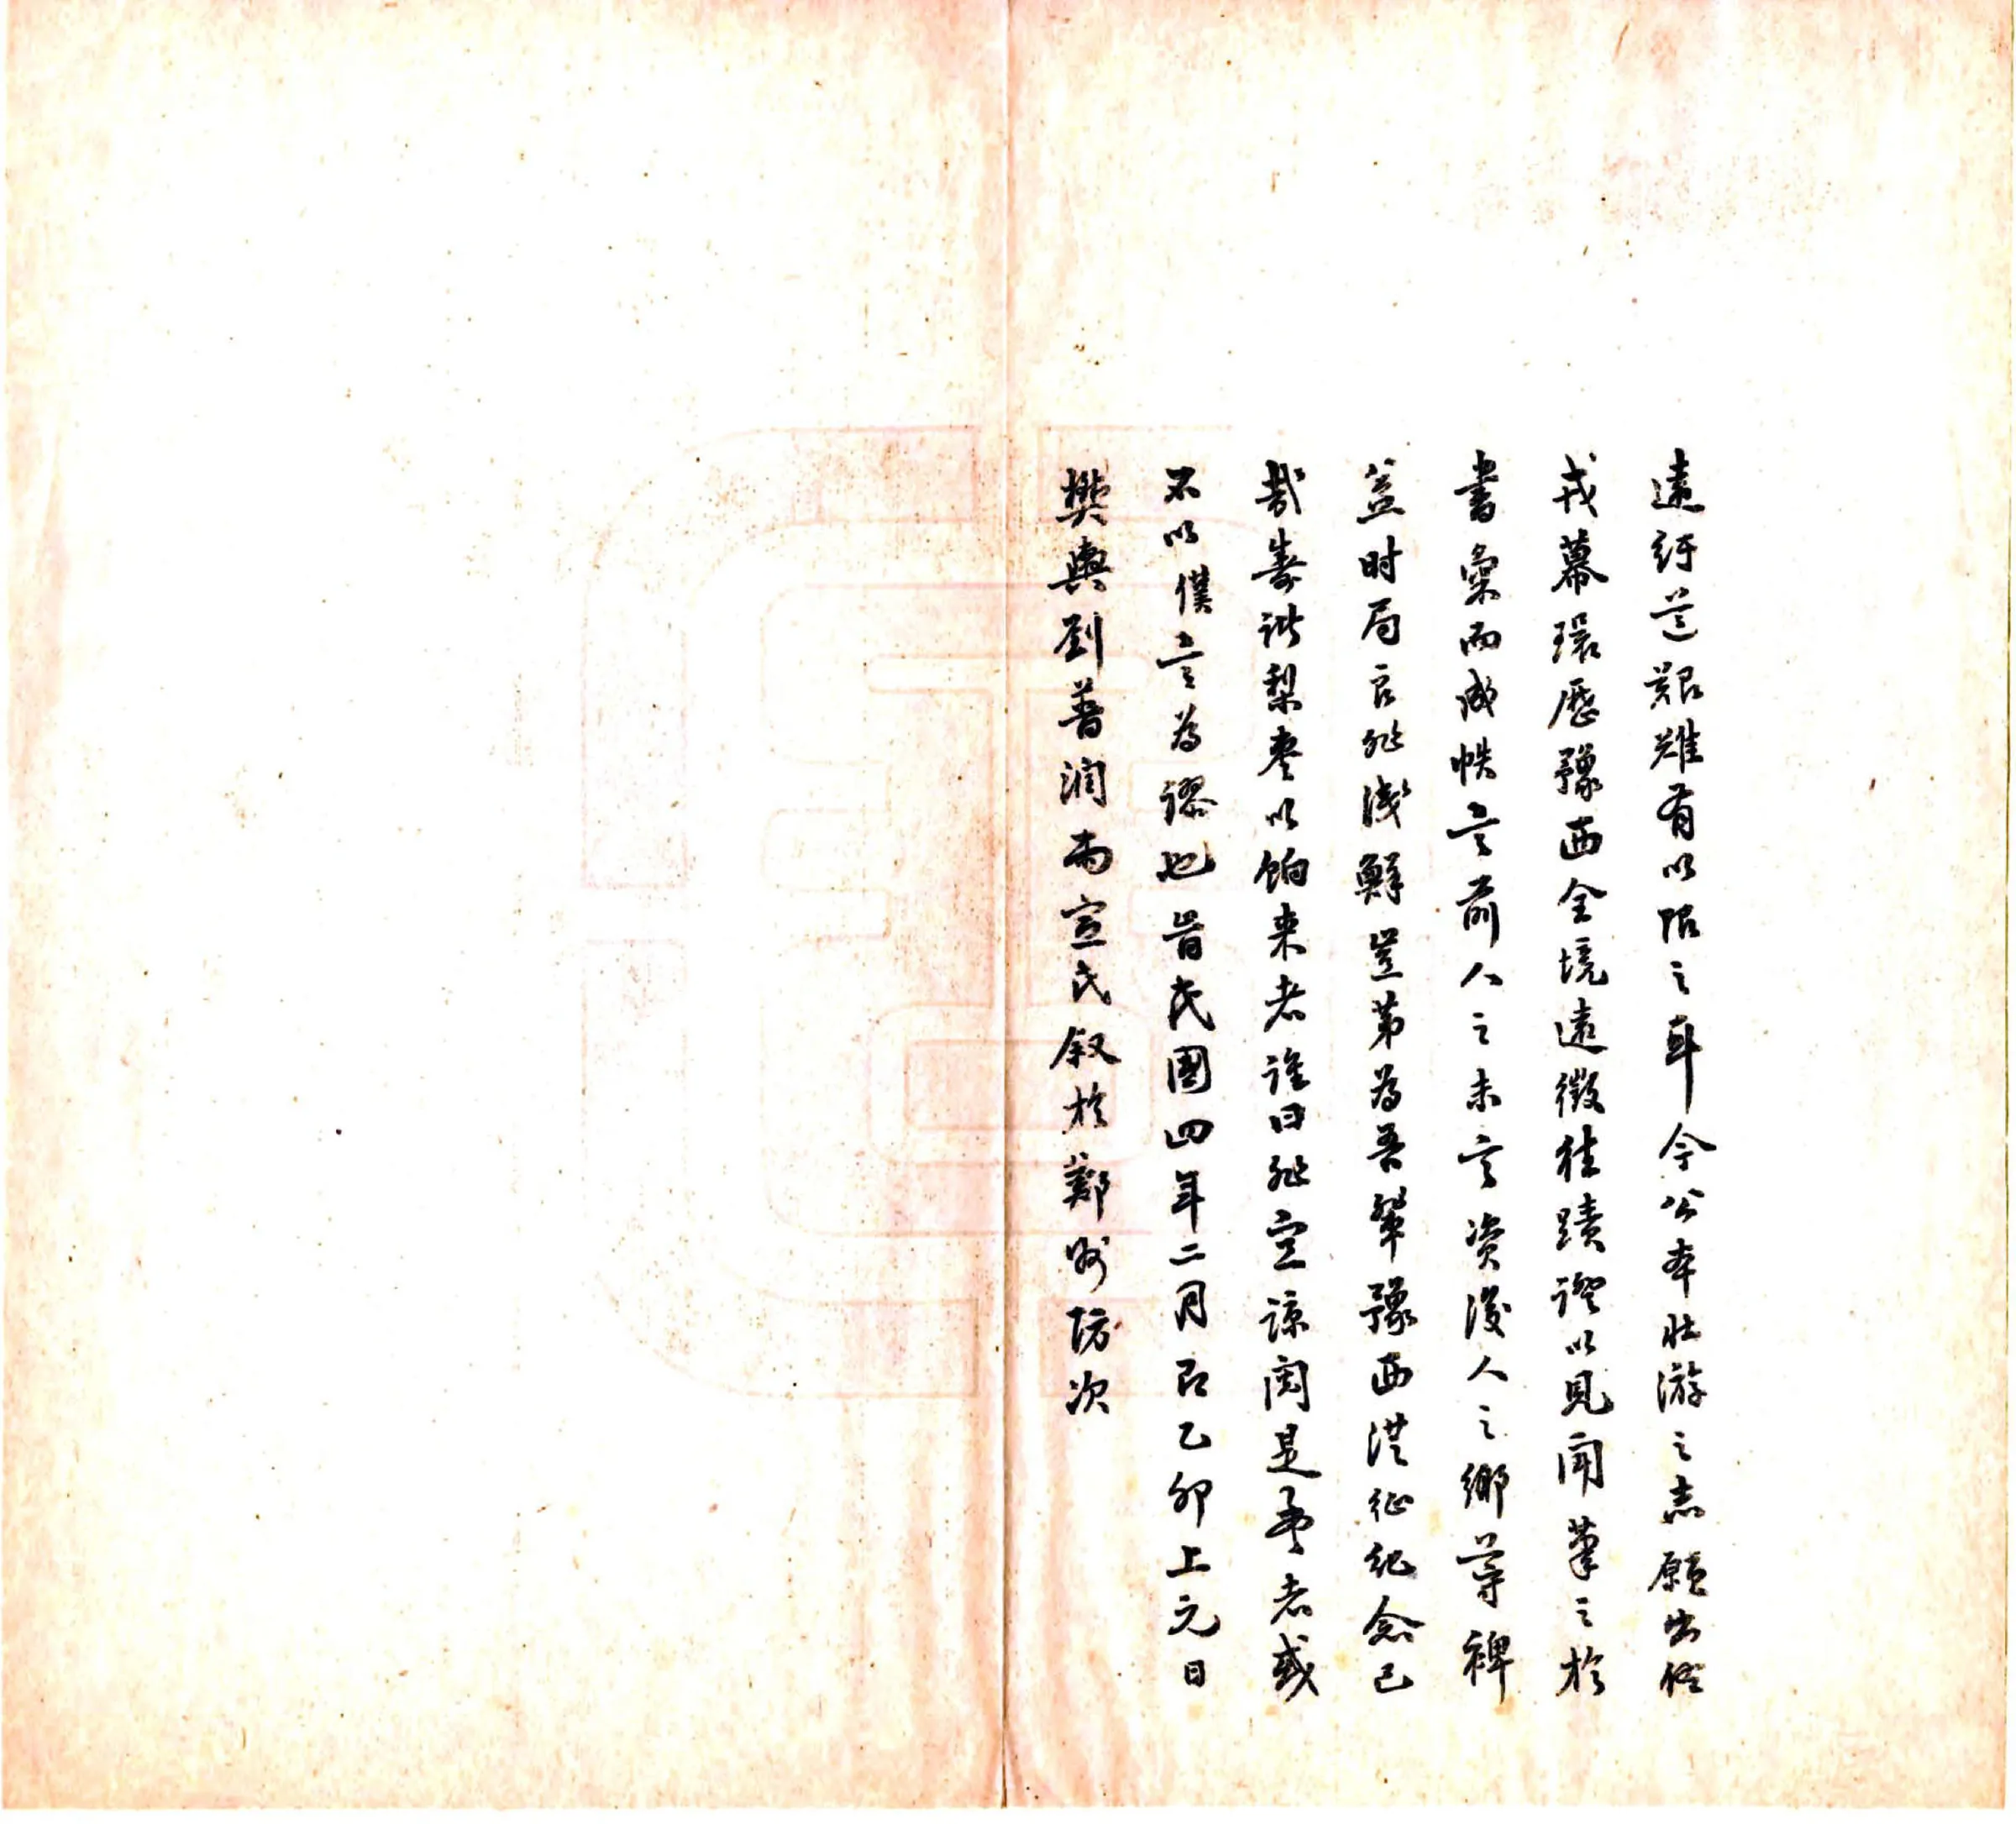 遠紆道艱難有以阻之耳今公本壯游之志願出佐
戎幕環歷豫西全境遠徵往蹟證以見聞筆之於
書彙而成帙言前人之未言資後人之鄉導裨
益时局良非淺鮮豈第為吾輩豫西從征紀念已
哉壽諸梨棗以餉来者誰曰非宜諒閱是承者或
不以僕言為謬也旹民國四年二月即乙卯上元日
樊輿劉普潤雨宣氏叙於鄭州防次